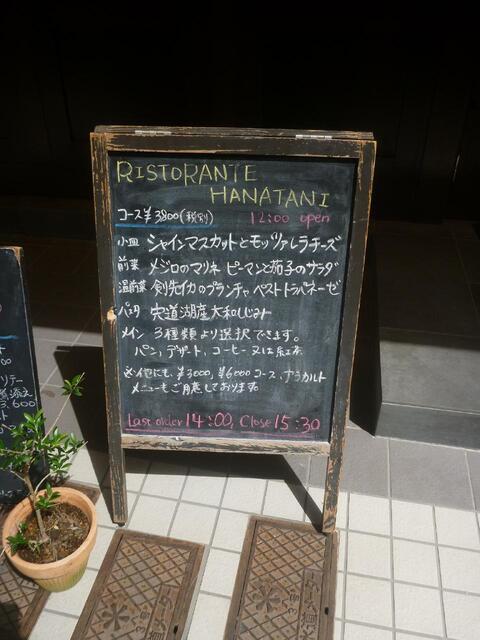 RISTORANTE
HANATANI
コース¥3800(税別) 12:00 open
小皿 シャインマスカットとモッツァレラチーズ
前菜 メジロのマリネ ピーマンと茄子のサラダ
温前菜 剣先イカのプランチャ ペストトラパネーゼ
パスタ 宍道湖産大和しじみ
メイン 3種類より選択できます。
パン、デザート、コーヒー又は紅茶
※他にも、¥3000、¥6000コース、アラカルト
メニューもご用意しております。
Last order 14:00, Close 15:30